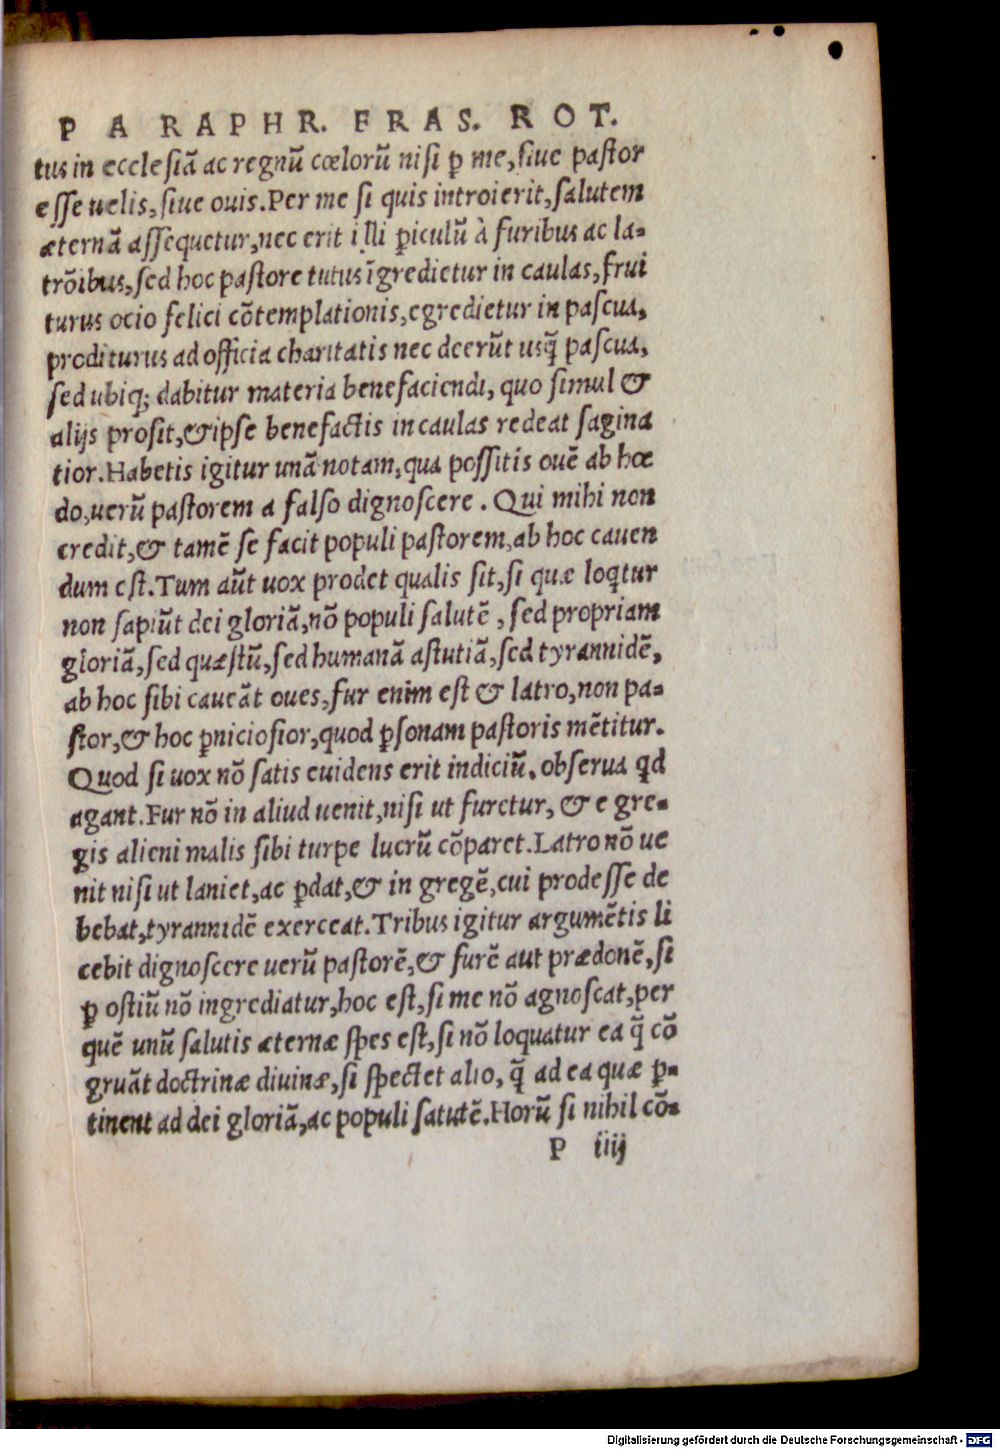 PARAPHR. ERAS. ROT.
tus in ecclesiã ac regnũ cœlorũ nisi ꝑ me, siue pastor
esse uelis, siue ouis. Per me si quis introierit, salutem
æternã assequetur, nec erit illi ꝑiculũ à furibus ac la-
trõibus, sed hoc pastore tutus ĩgredietur in caulas, frui
turus ocio felici cõtemplationis, egredietur in pascua,
proditurus ad officia charitatis nec deerũt usq̃ pascua,
sed ubiq; dabitur materia benefaciendi, quo simul &
alijs prosit, & ipse benefactis in caulas redeat sagina
tior. Habetis igitur unã notam, qua possitis ouẽ ab hœ
do, uerũ pastorem a falso dignoscere. Qui mihi non
credit, & tamẽ se facit populi pastorem, ab hoc cauen
dum est. Tum aũt uox prodet qualis sit, si quæ loq̃tur
non sapiũt dei gloriã, nõ populi salutẽ, sed propriam
gloriã, sed quæstũ, sed humanã astutiã, sed tyrannidẽ,
ab hoc sibi caueãt oues, fur enim est & latro, non pa-
stor, & hoc ꝑniciosior, quod ꝑsonam pastoris mẽtitur.
Quod si uox nõ satis euidens erit indiciũ, obserua qd
agant. Fur nõ in aliud uenit, nisi ut furetur, & e gre-
gis alieni malis sibi turpe lucrũ cõparet. Latro nõ ue
nit nisi ut laniet, ac ꝑdat, & in gregẽ, cui prodesse de
bebat, tyrannidẽ exerceat. Tribus igitur argumẽtis li
cebit dignoscere uerũ pastorẽ, & furẽ aut prædonẽ, si
ꝑ ostiũ nõ ingrediatur, hoc est, si me nõ agnoscat, per
quẽ unũ salutis æternæ spes est, si nõ loquatur ea q̃ cõ
gruãt doctrinæ diuinæ, si spectet alio, q̃ ad ea quæ ꝑ-
tinent ad dei gloriã, ac populi salutẽ. Horũ si nihil cõ-
P iiij
Digitalisierung gefördert durch die Deutsche Forschungsgemeinschaft - DFG